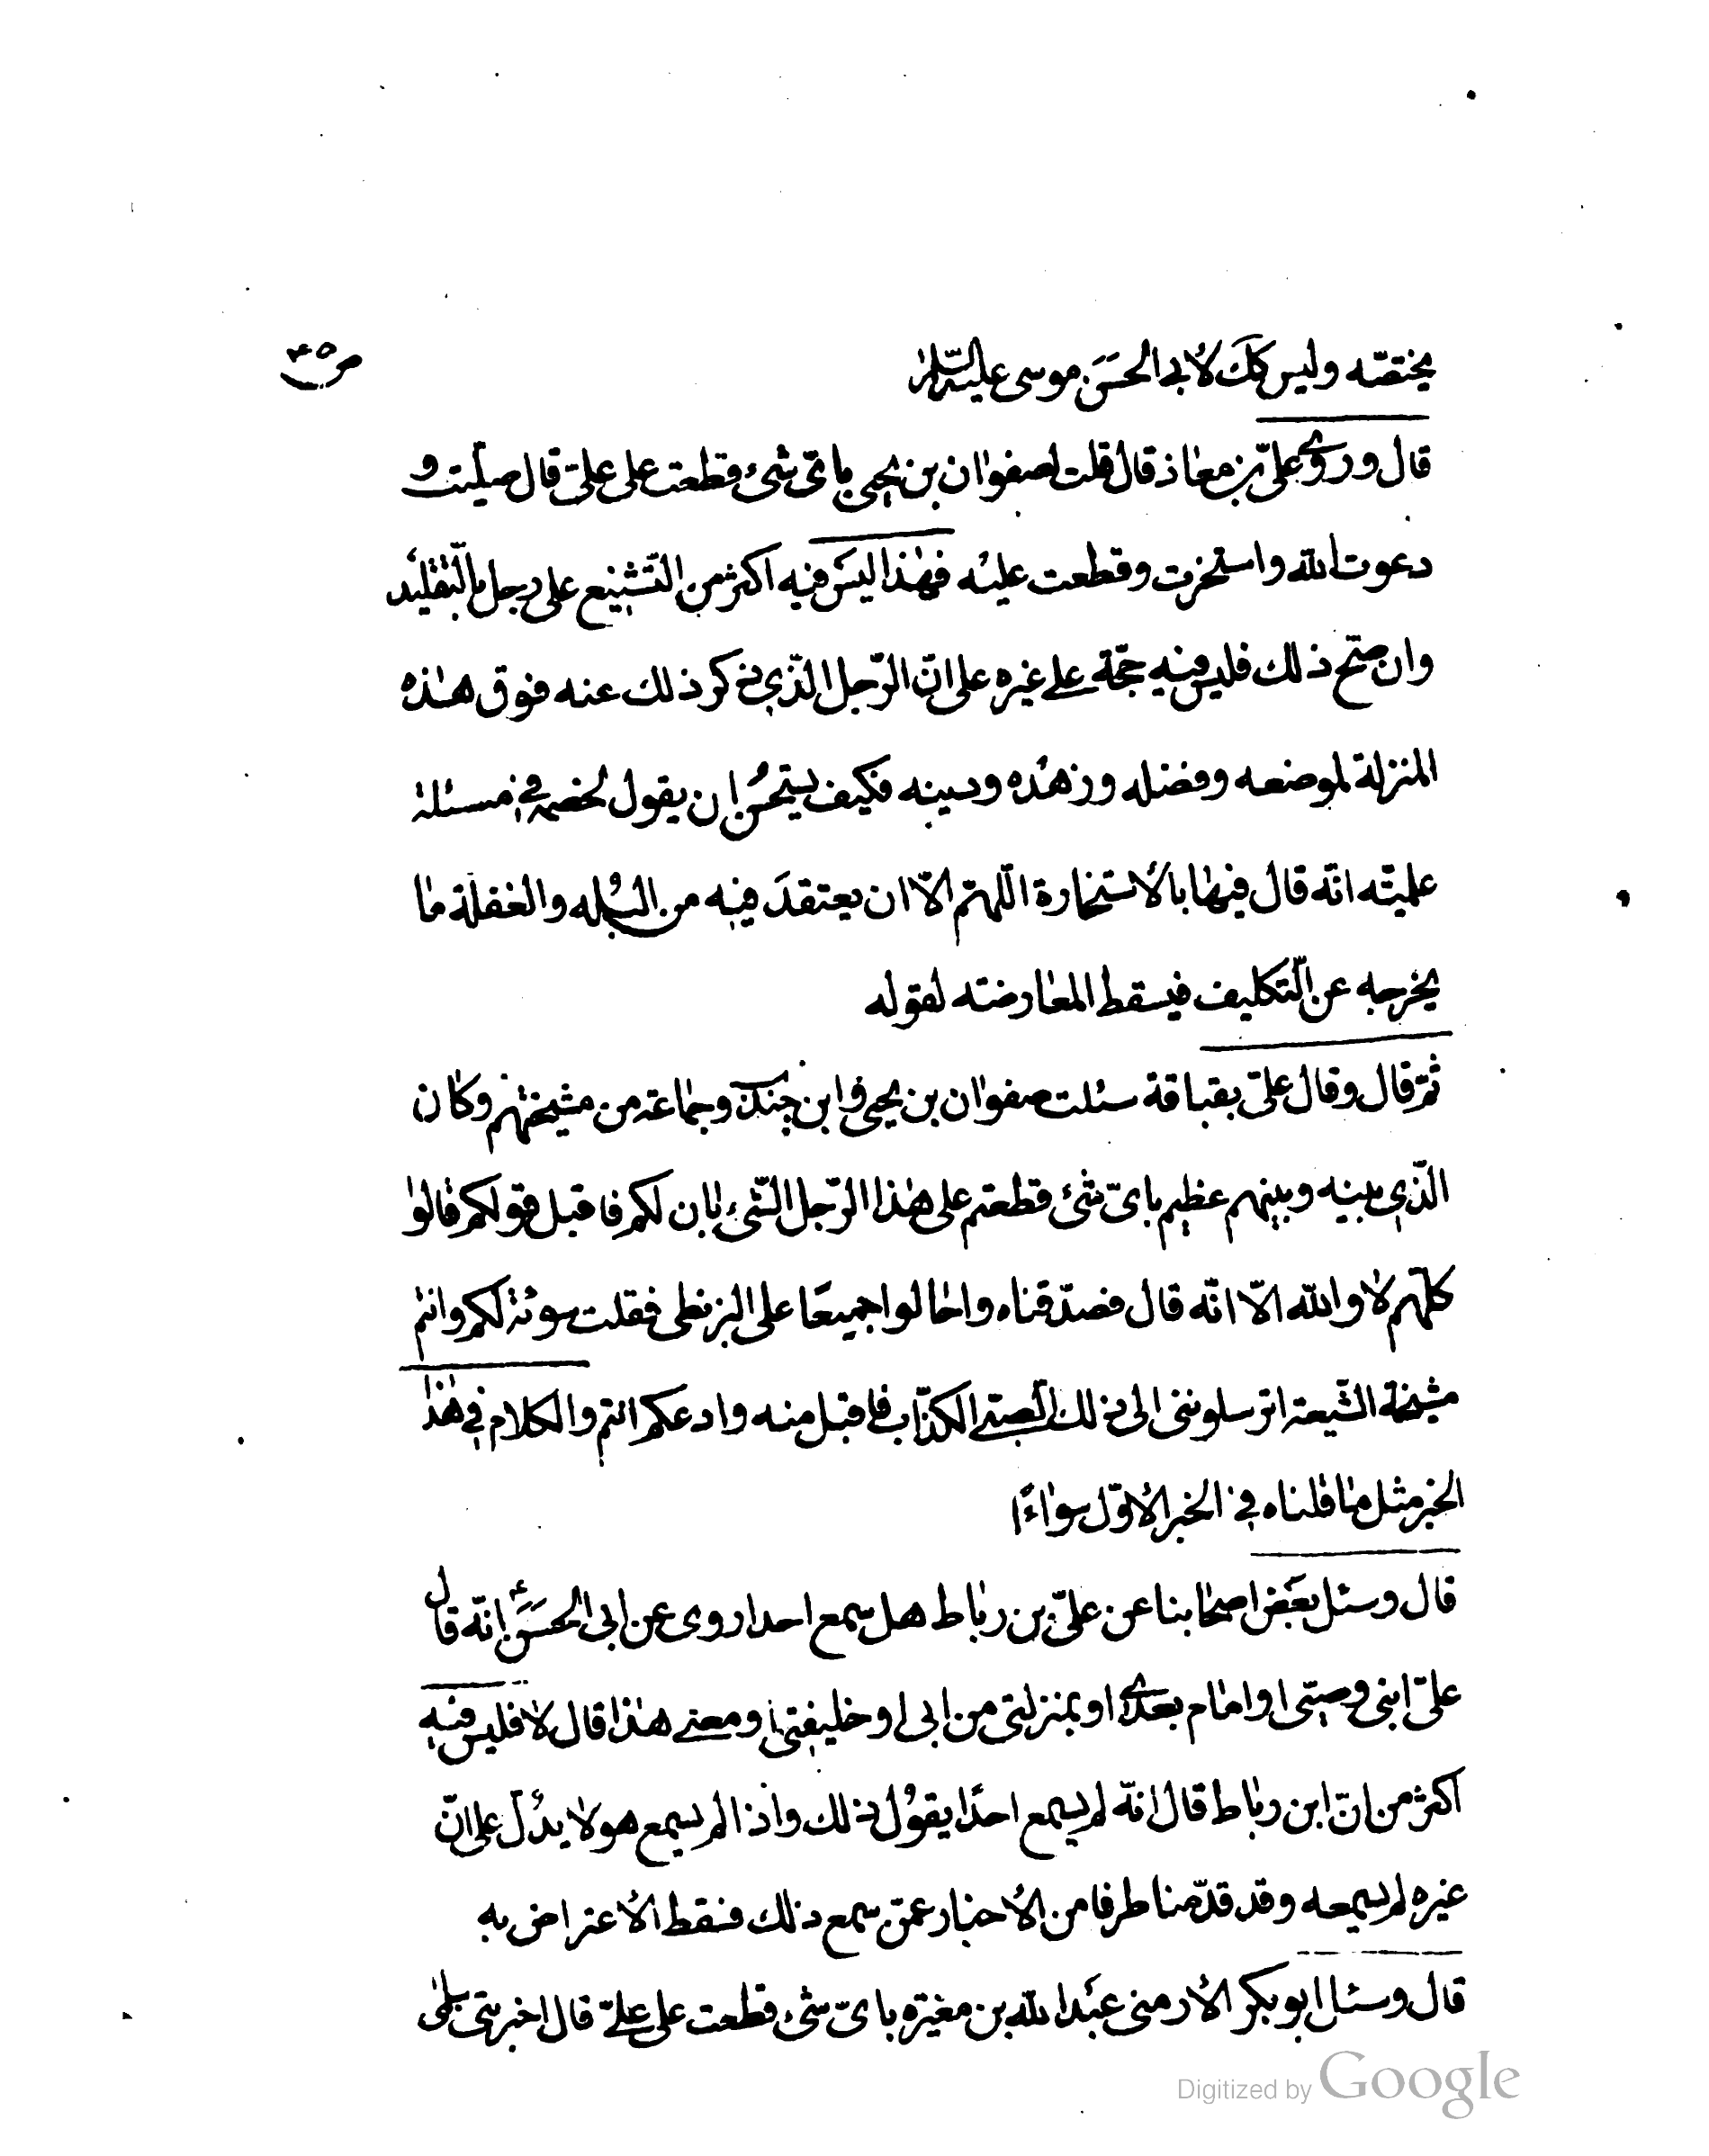 ص ٣٥
يختصّه وليس كك لأبي الحسَن موسى عليه السّلام
قال وروى علىّ بن معاذ قال قلت لصفوان بن يحيى باىّ شىء قطعت على علىّ قال صلّيت و
دعوت الله واستخرت وقطعت عليه فهٰذا ليسَ فيه اكثر من التّشنيع على رجل بالتّقليد
وان صحّ ذلك فليس فيه حجّة على غيره على انّ الرّجل الّذي ذكر ذلك عنه فوق هٰذه
المنزلة لموضعه وفضله وزهده ودينه فكيف يستحسُن ان يقول لخصمه في مسئلة
علميّة انّه قال فيها بالأستخارة اللّهمّ الاّ ان يعتقدَ فيه من البُله والغفلة ما
يخرجه عن التّكليف فيسقط المعارضته لقوله
ثمّ قال وقال علىّ بقباقة سئلت صفوان بن يحيى وابن جندب وجماعة من مشيختهم وكان
الّذي بينه وبينهم عظيم باىّ شىء قطعتم على هٰذا الرّجل الشّىء بان لكم فاقبل قولكم قالوا
كلّهم لا والله الاّ انّه قال فصدّقناه واحالوا جميعًا على البزنطى فقلت سوئة لكم وانتم
مشيخة الشّيعة اترسلوننى الى ذلك الصّبى الكذّاب فاقبل منه وادعكم انتم والكلام في هٰذا
الخبر مثل ما قلناه في الخبر الأوّل سواءًا
قال وسئل بعَض اصحابنا عن علىّ بن رباط هل سمع احدا روى عن ابى الحسَنؑ انّه قال
علىّ ابنى وصيّى او امام بعدى او بمنزلتى من ابى او خليفتى او معنى هٰذا قال لا فليس فيه
اكثر من انّ ابن رباط قال انّه لم يسمع احدًا يقول ذلك واذا لم يسمع هو لا يدُلّ على انّ
غيره لم يسمعه وقد قدّمنا طرفا من الأخبار عمّن سمع ذلك فسقط الأعتراض به
قال وسئل ابو بكر الأرمنى عبَد الله بن مغيره باىّ شىء قطعت على علىّ قال اخبرتنى سلمى
Digitized by Google